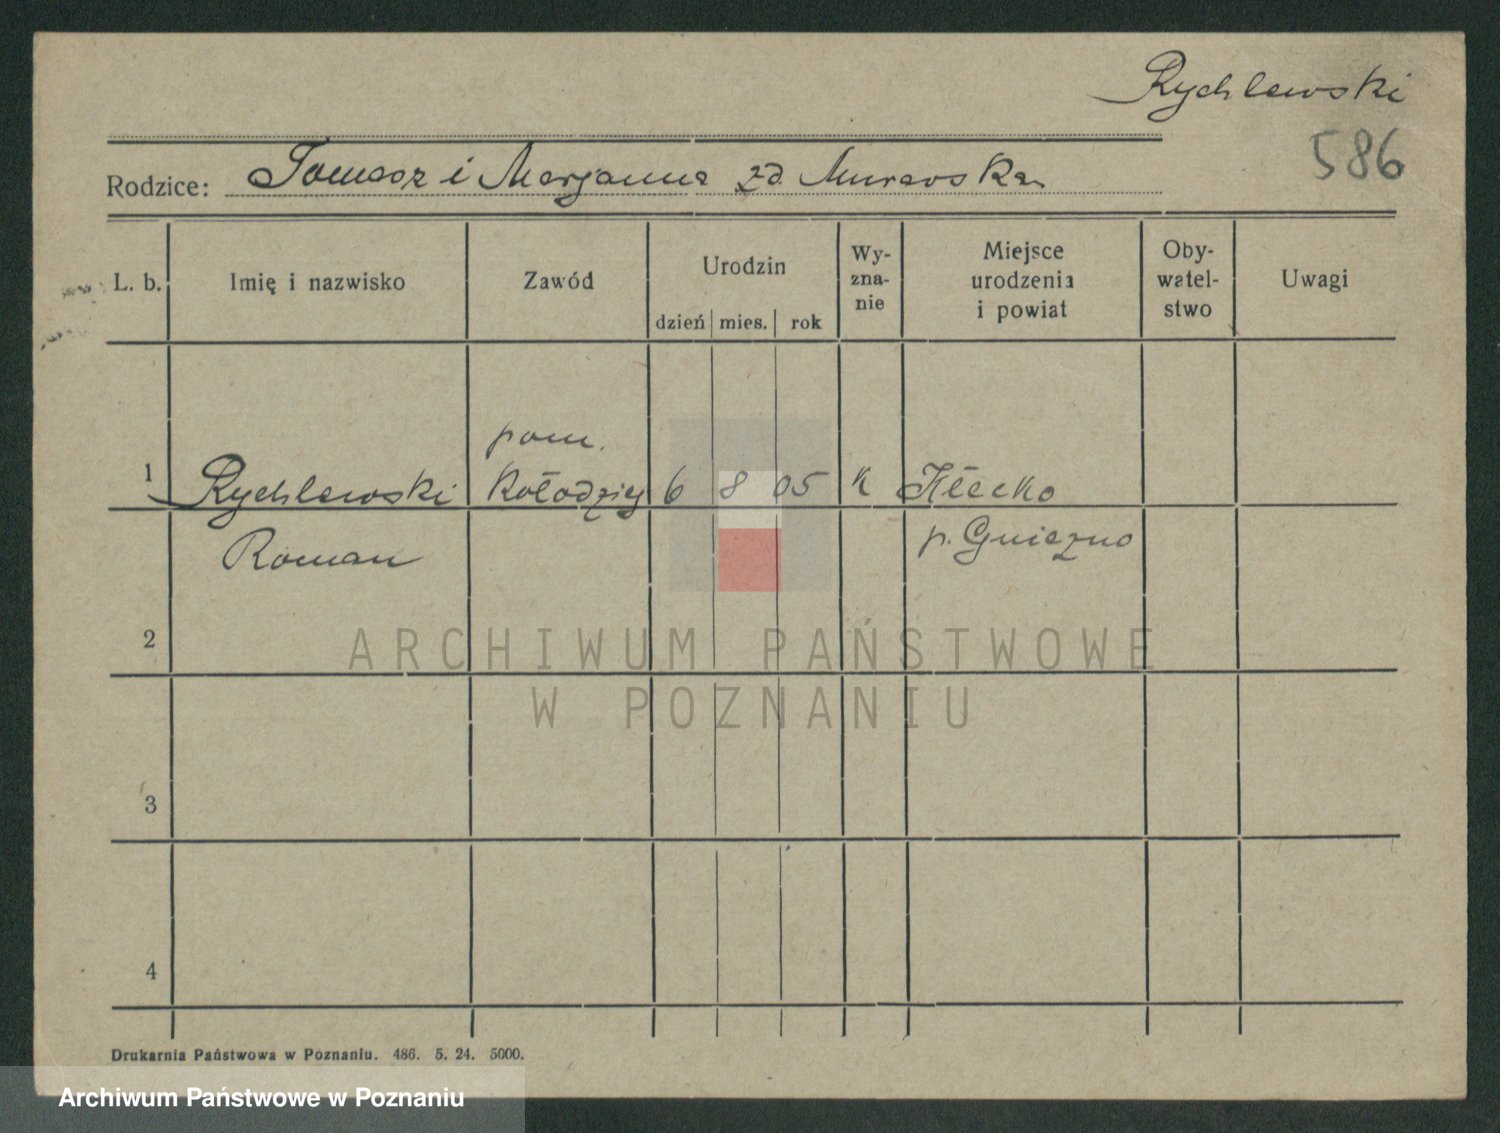 Rychlewski
586
Rodzice: Tomasz i Marjanna zd. Murawska
L. b.
Imię i nazwisko
Zawód
Urodzin
dzień
mies.
rok
Wy-
zna-
nie
Miejsce
urodzenia
i powiat
Oby-
watel-
stwo
Uwagi
pom.
1 Rychlewski kołodziej 6 8 05 k Kłecko
Roman p. Gniezno
2
3
4
ARCHIWUM PAŃSTWOWE
W POZNANIU
Drukarnia Państwowa w Poznaniu. 486. 5. 24. 5000.
Archiwum Państwowe w Poznaniu